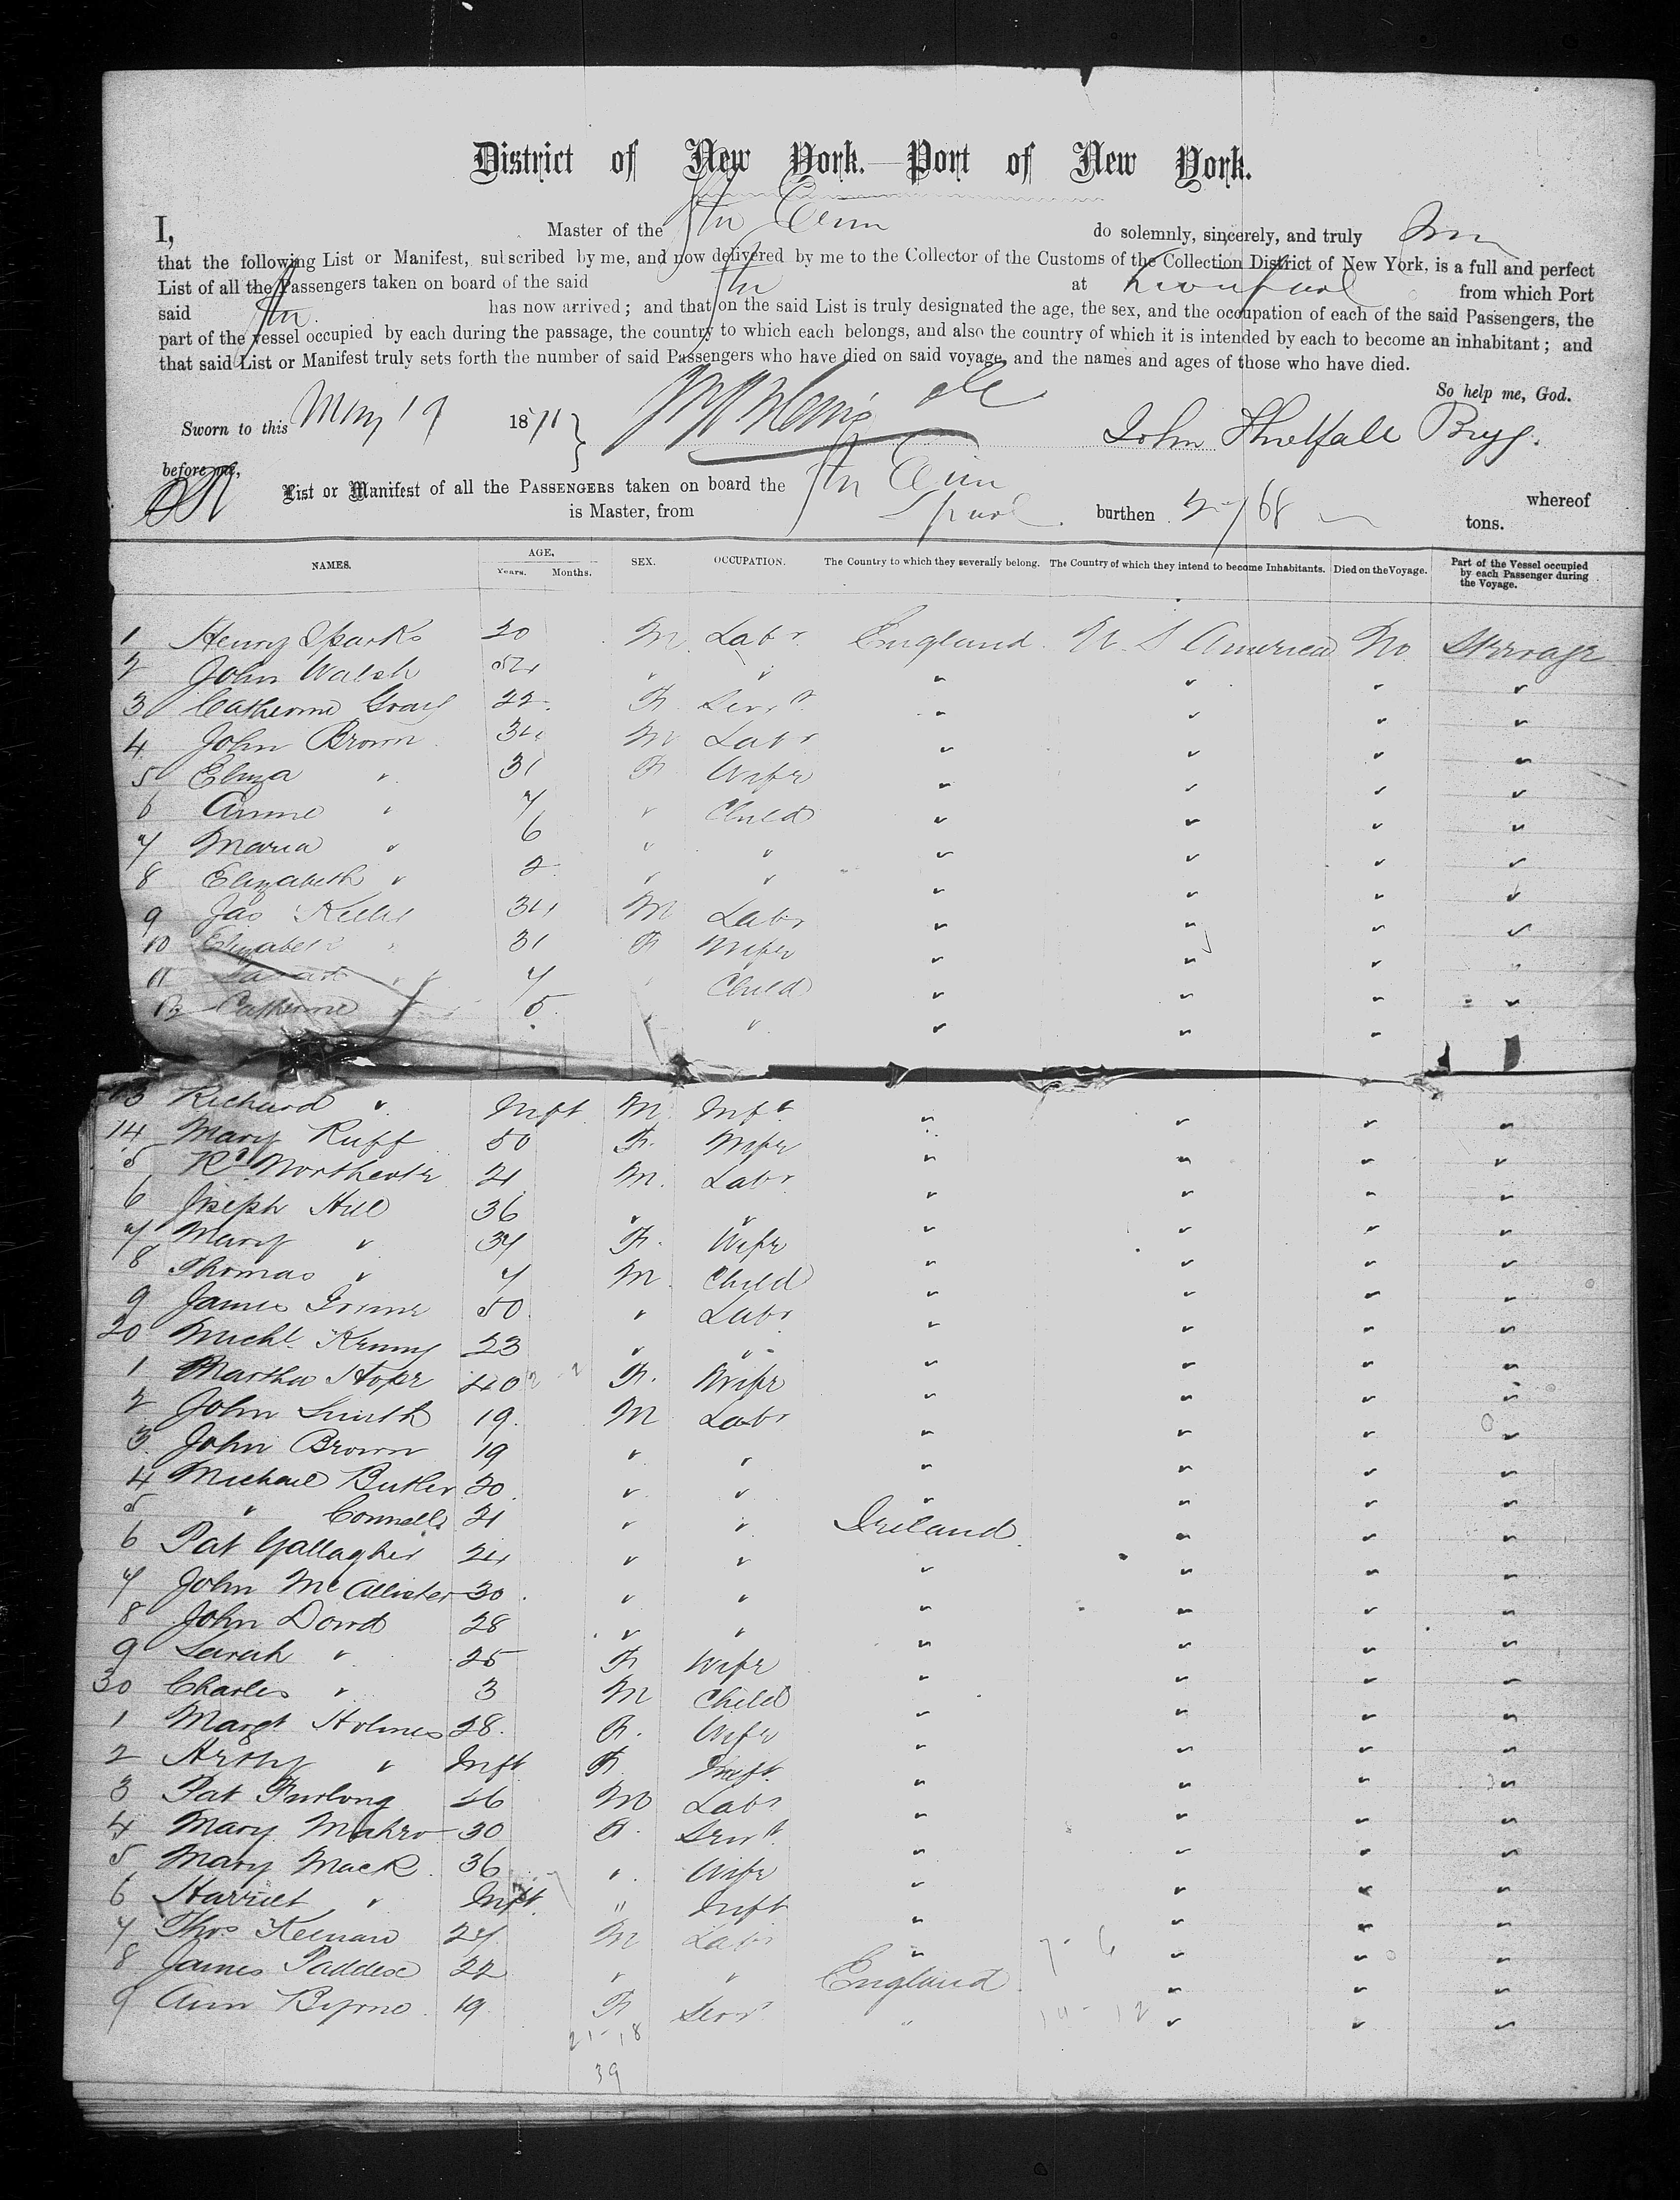 District of New York.—Port of New York.
I, Master of the Str do solemnly, sincerely, and truly
that the following List or Manifest, subscribed by me, and now delivered by me to the Collector of the Customs of the Collection District of New York, is a full and perfect
List of all the Passengers taken on board of the said Str at Liverpool from which Port
said Str. has now arrived; and that on the said List is truly designated the age, the sex, and the occupation of each of the said Passengers, the
part of the vessel occupied by each during the passage, the country to which each belongs, and also the country of which it is intended by each to become an inhabitant; and
that said List or Manifest truly sets forth the number of said Passengers who have died on said voyage, and the names and ages of those who have died.
So help me, God.
Sworn to this May 19 1871 } John Threlfall
before me,
List or Manifest of all the PASSENGERS taken on board the Str whereof
is Master, from Lpool burthen tons.
NAMES. AGE. Years. Months. SEX. OCCUPATION. The Country to which they severally belong. The Country of which they intend to become Inhabitants. Died on the Voyage. Part of the Vessel occupied by each Passenger during the Voyage.
1 Henry Sparks 20 M Labr England U. S America No Steerage
2 John Walsh 54 " " " " " "
3 Catherine Gray 22 F Servt " " " "
4 John Brown 34 M Labr " " " "
5 Eliza " 31 F Wife " " " "
6 Annie " 7 " Child " " " "
7 Maria " 6 " " " " " "
8 Elizabeth " 2 " " " " " "
9 Jas 34 M Labr " " " "
10 Elizabeth " 31 F Wife " " " "
11 Sarah " 7 " Child " " " "
12 Catherine 5 " " " " "
13 Richard " Inft M Inft " " " "
14 Mary Ruff 50 F. Wife " " " "
5 Rd Northcote 21 M. Labr " " " "
6 Joseph Hill 36 " " " " " "
7 Mary " 37 F. Wife " " " "
8 Thomas " 7 M Child " " " "
9 James 50 " Labr " " " "
20 Michl Kenny 23 " " " " " "
1 Martha Hope 40 F. Wife " " " "
2 John Smith 19. M Labr " " " "
3 John Brown 19 " " " " " "
4 Michael Butler 20 " " " " " "
5 " Connell 21 " " Ireland " " "
6 Pat Gallagher 24 " " " " " "
7 John McAllister 30 " " " " " "
8 John Dowd 28 " " " " " "
9 Sarah " 25 F Wife " " " "
30 Charles " 3 M Child " " " "
1 Margt Holmes 28. F. Wife " " " "
2 " Inft F. Inft. " " " "
3 Pat Furlong 26 M Labr " " " "
4 Mary 30 F. Servt. " " " "
5 Mary Mack 36 " Wife " " " "
6 Harriet " Inft. " Inft " " " "
7 Thos 27 M Labr " " " "
8 James 22 " " England " " "
9 Ann Byrne 19. F Servt " " " "
21-18
39
7-6
14-12